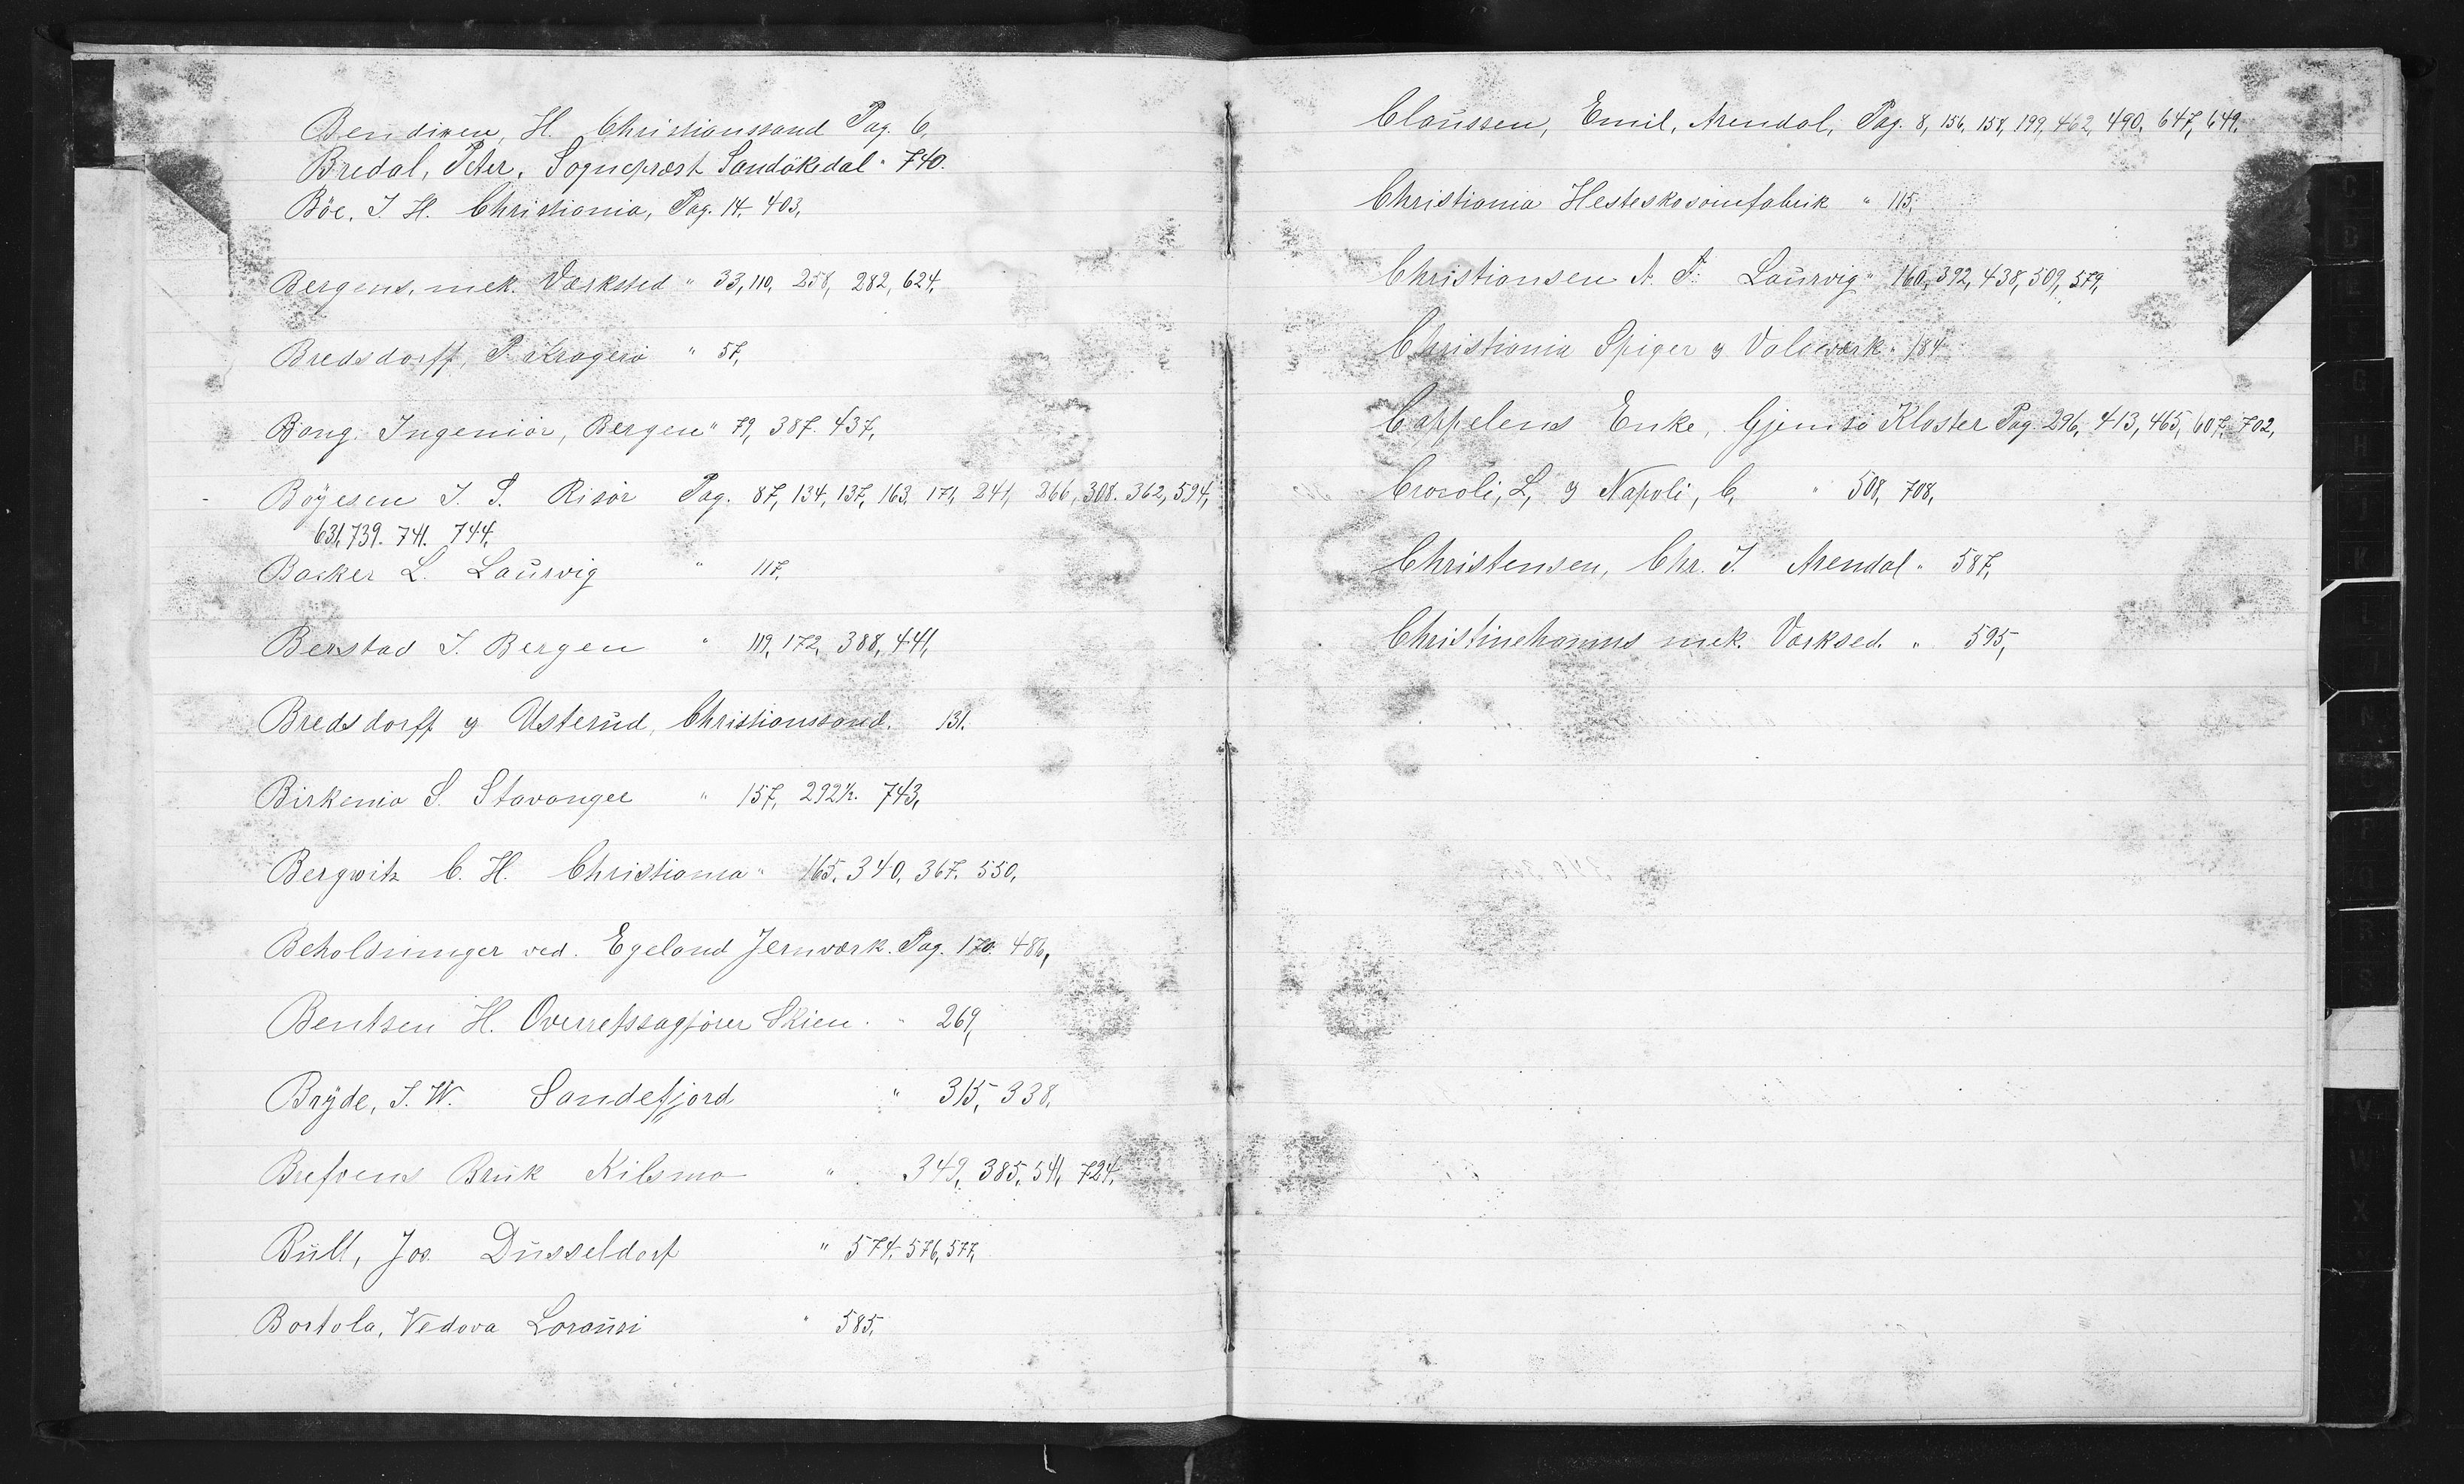 Bendixen, H. Christianssand Pag. 6,
Bredal, Peter, Sogneprest Sandökedal " 740.
Böe, J. H. Christiania, Pag. 14. 403,
Bergens, mek. Værksted " 33, 110, 258, 282, 624,
Bredsdorff, P. Kragerö " 57,
Bong. Ingeniör, Bergen " 79, 387. 437,
Böyesen J. S. Risör Pag. 87, 134, 137, 163, 171, 241, 266, 308. 362, 594,
631, 739. 741. 744,
Backer L. Laurvig " 117,
Berstad J. Bergen " 119, 172, 388, 441,
Bredsdorff & Usterud, Christianssand. 131.
Birkenia S. Stavanger " 157, 292½. 743,
Bergwitz C. H. Christiania " 165. 340, 367. 550,
Beholdninger ved. Egeland Jernværk. Pag. 170. 486,
Bentsen H. Overretssagförer Skien. " 269,
Bryde, J. W. Sandefjord " 315, 338,
Brefvens Bruk Kilsmo " 349, 385, 541, 724,
Büll, Jos. Düsseldorf " 574. 576, 577,
Bortola, Vedova " 585,
Claussen, Emil, Arendal, Pag. 8, 156, 158, 199, 462, 490, 647, 649,
Christiania Hesteskosömfabrik " 115,
Christiansen A. F. Laurvig " 160, 392, 438, 509, 579,
Christiania Spiger & Valseværk " 184
Cappelens Enke, Gjemsö Kloster Pag. 296, 413, 465, 607, 702,
Crocoli, L, & Napoli, C, " 508, 708,
Christensen, Chr. J. Arendal " 587,
Christinehamns mek. Værksed. " 595,
C
G
H
J
K
L
N
P
R
S
V
W
X